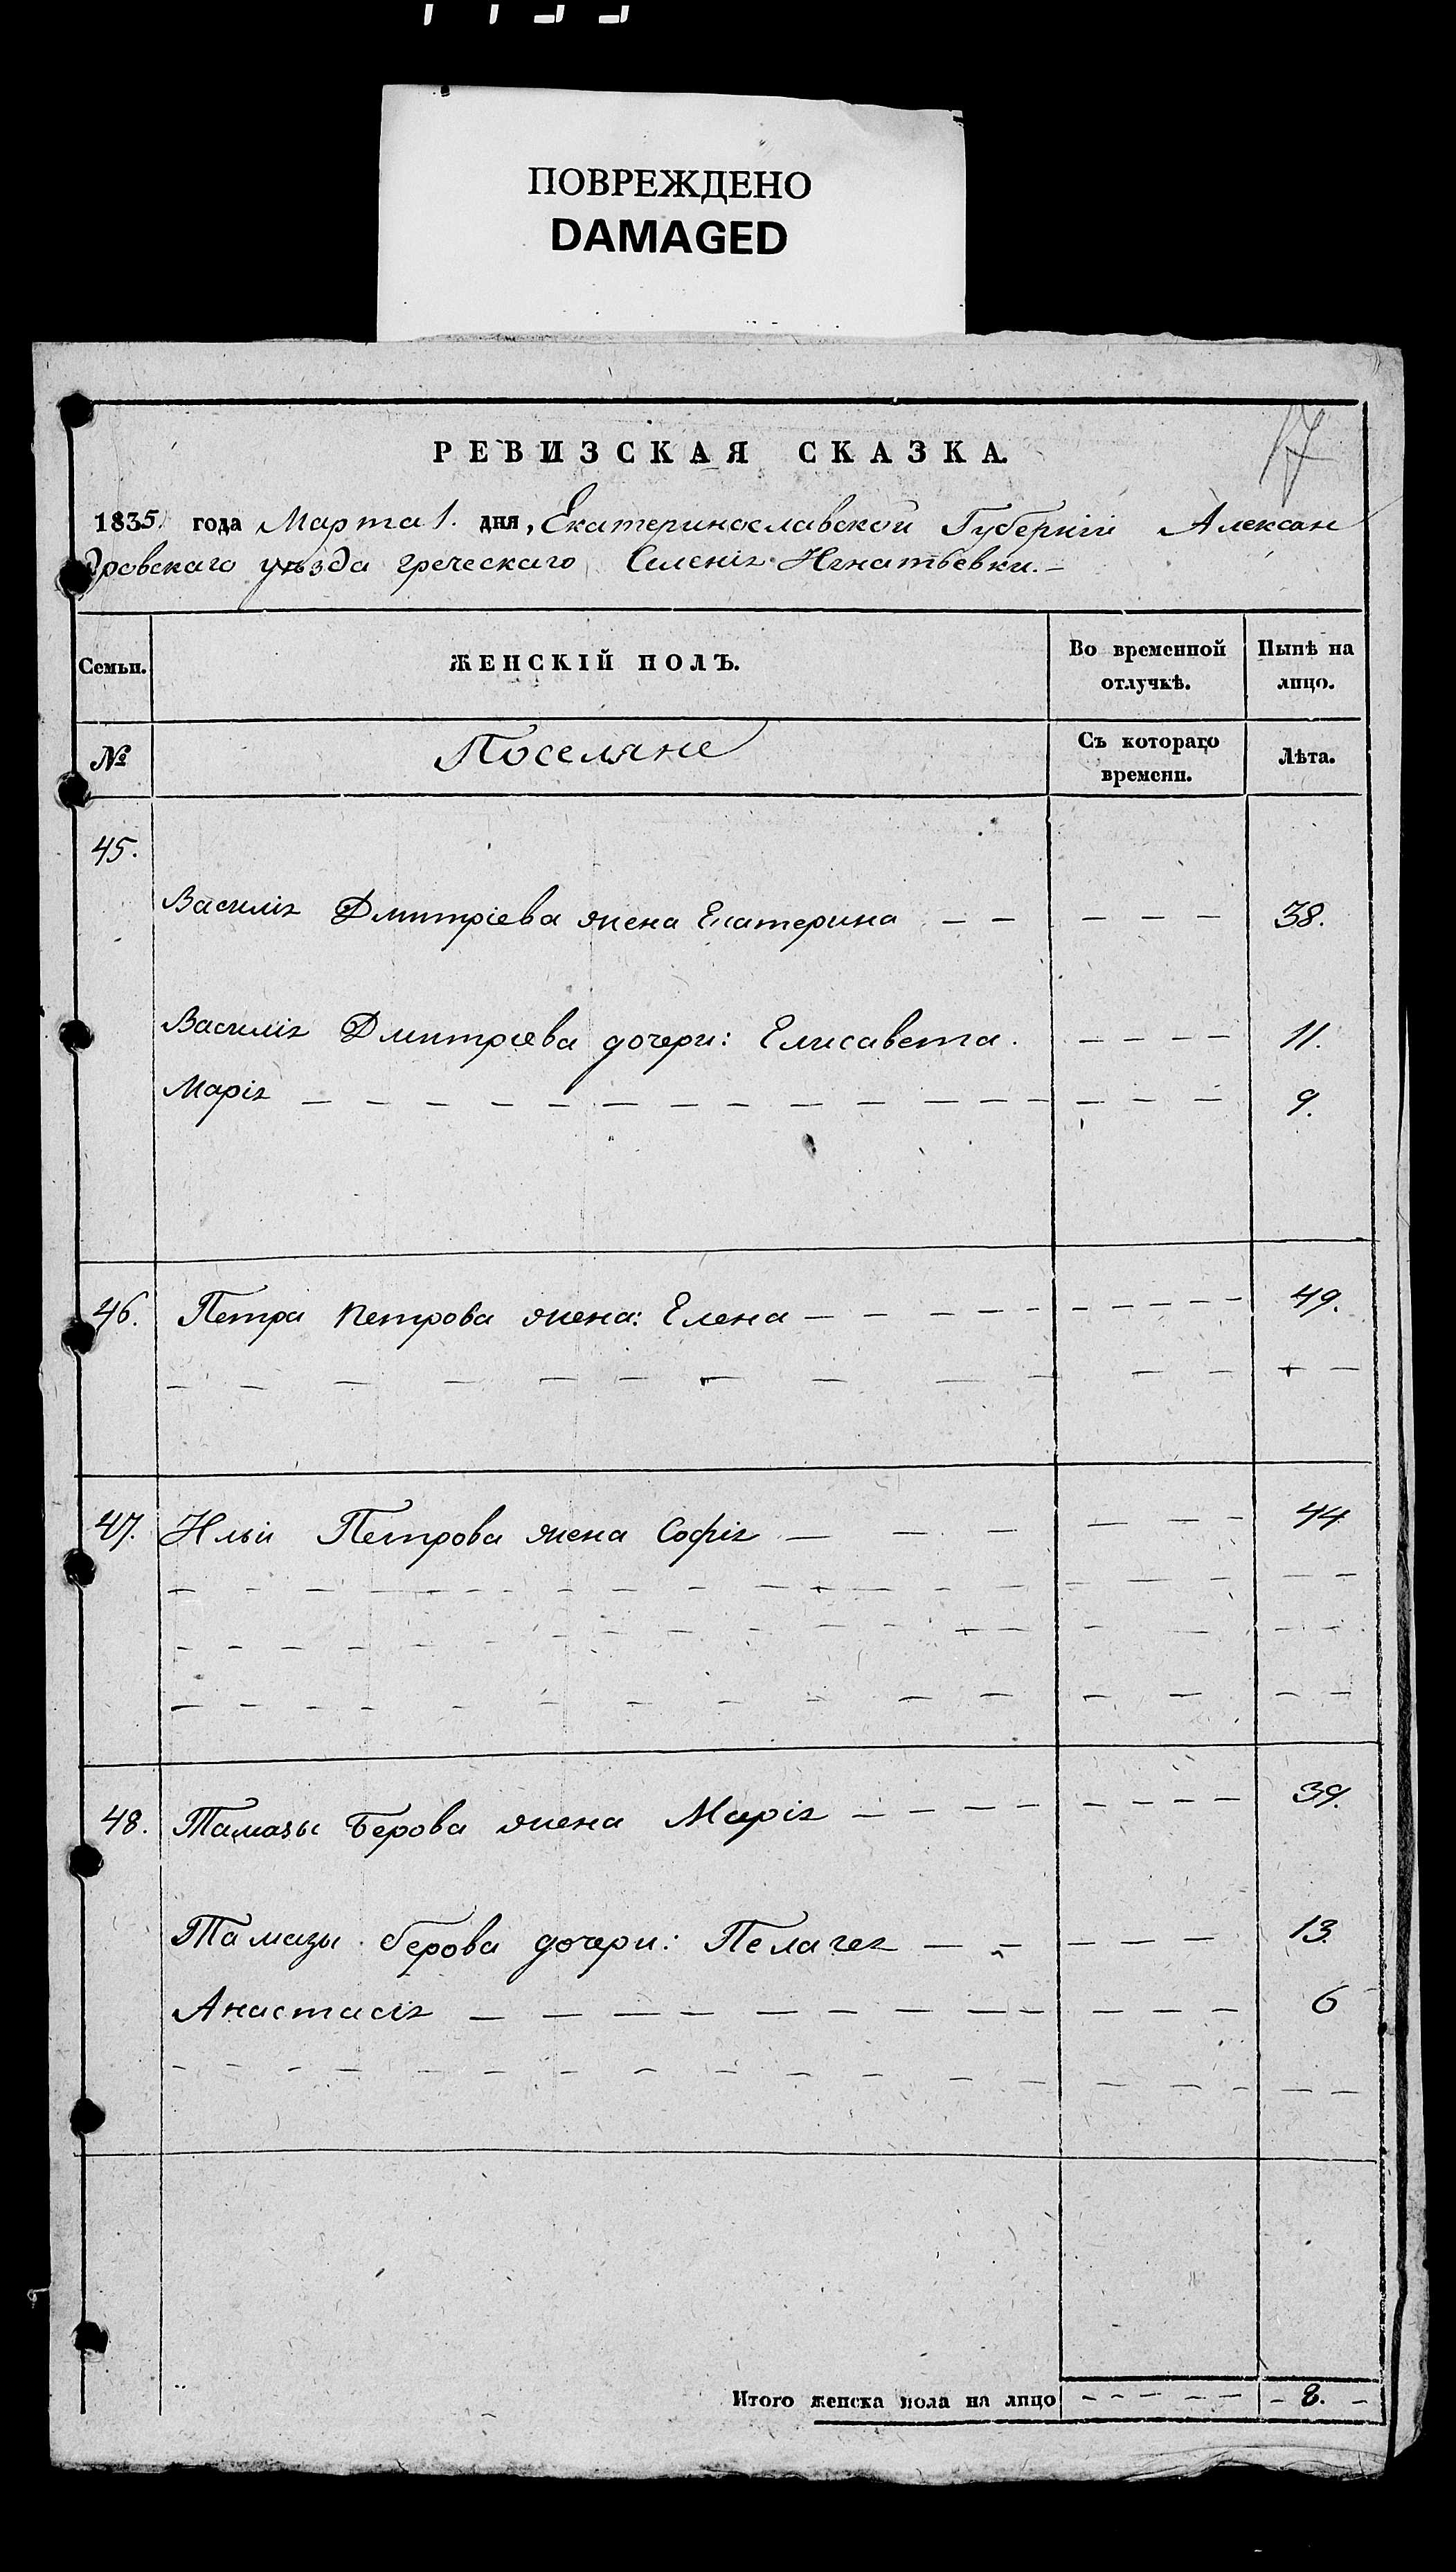 ПОВРЕЖДЕНО
DAMAGED
17
РЕВИЗСКАЯ СКАЗКА.
1835 года Марта 1. дня, Екатеринославской Губерніи Алексан
дровскаго уѣзда греческаго Селенія Игнатьевки.—
Семьи. ЖЕНСКІЙ ПОЛЪ. Во временной отлучкѣ. Нынѣ на лицо.
№ Поселяне Съ котораго времени. Лѣта.
45.
Василія Дмитріева жена Екатерина — — — — — 38.
Василія Дмитріева дочери: Елисавета. — — — — 11.
Марія — — — — — — — — — — — — — — — 9.
46. Петра Петрова жена: Елена — — — — — — — — — 49.
47. Ильи Петрова жена Софія — — — — — — 44
48. Тамазы Берова жена Марія — — — — — — — — 39.
Тамазы Берова дочери: Пелагея — — — — — — 13.
Анастасія — — — — — — — — — — — — 6
Итого женска пола на лицо — — — — — — 8. —